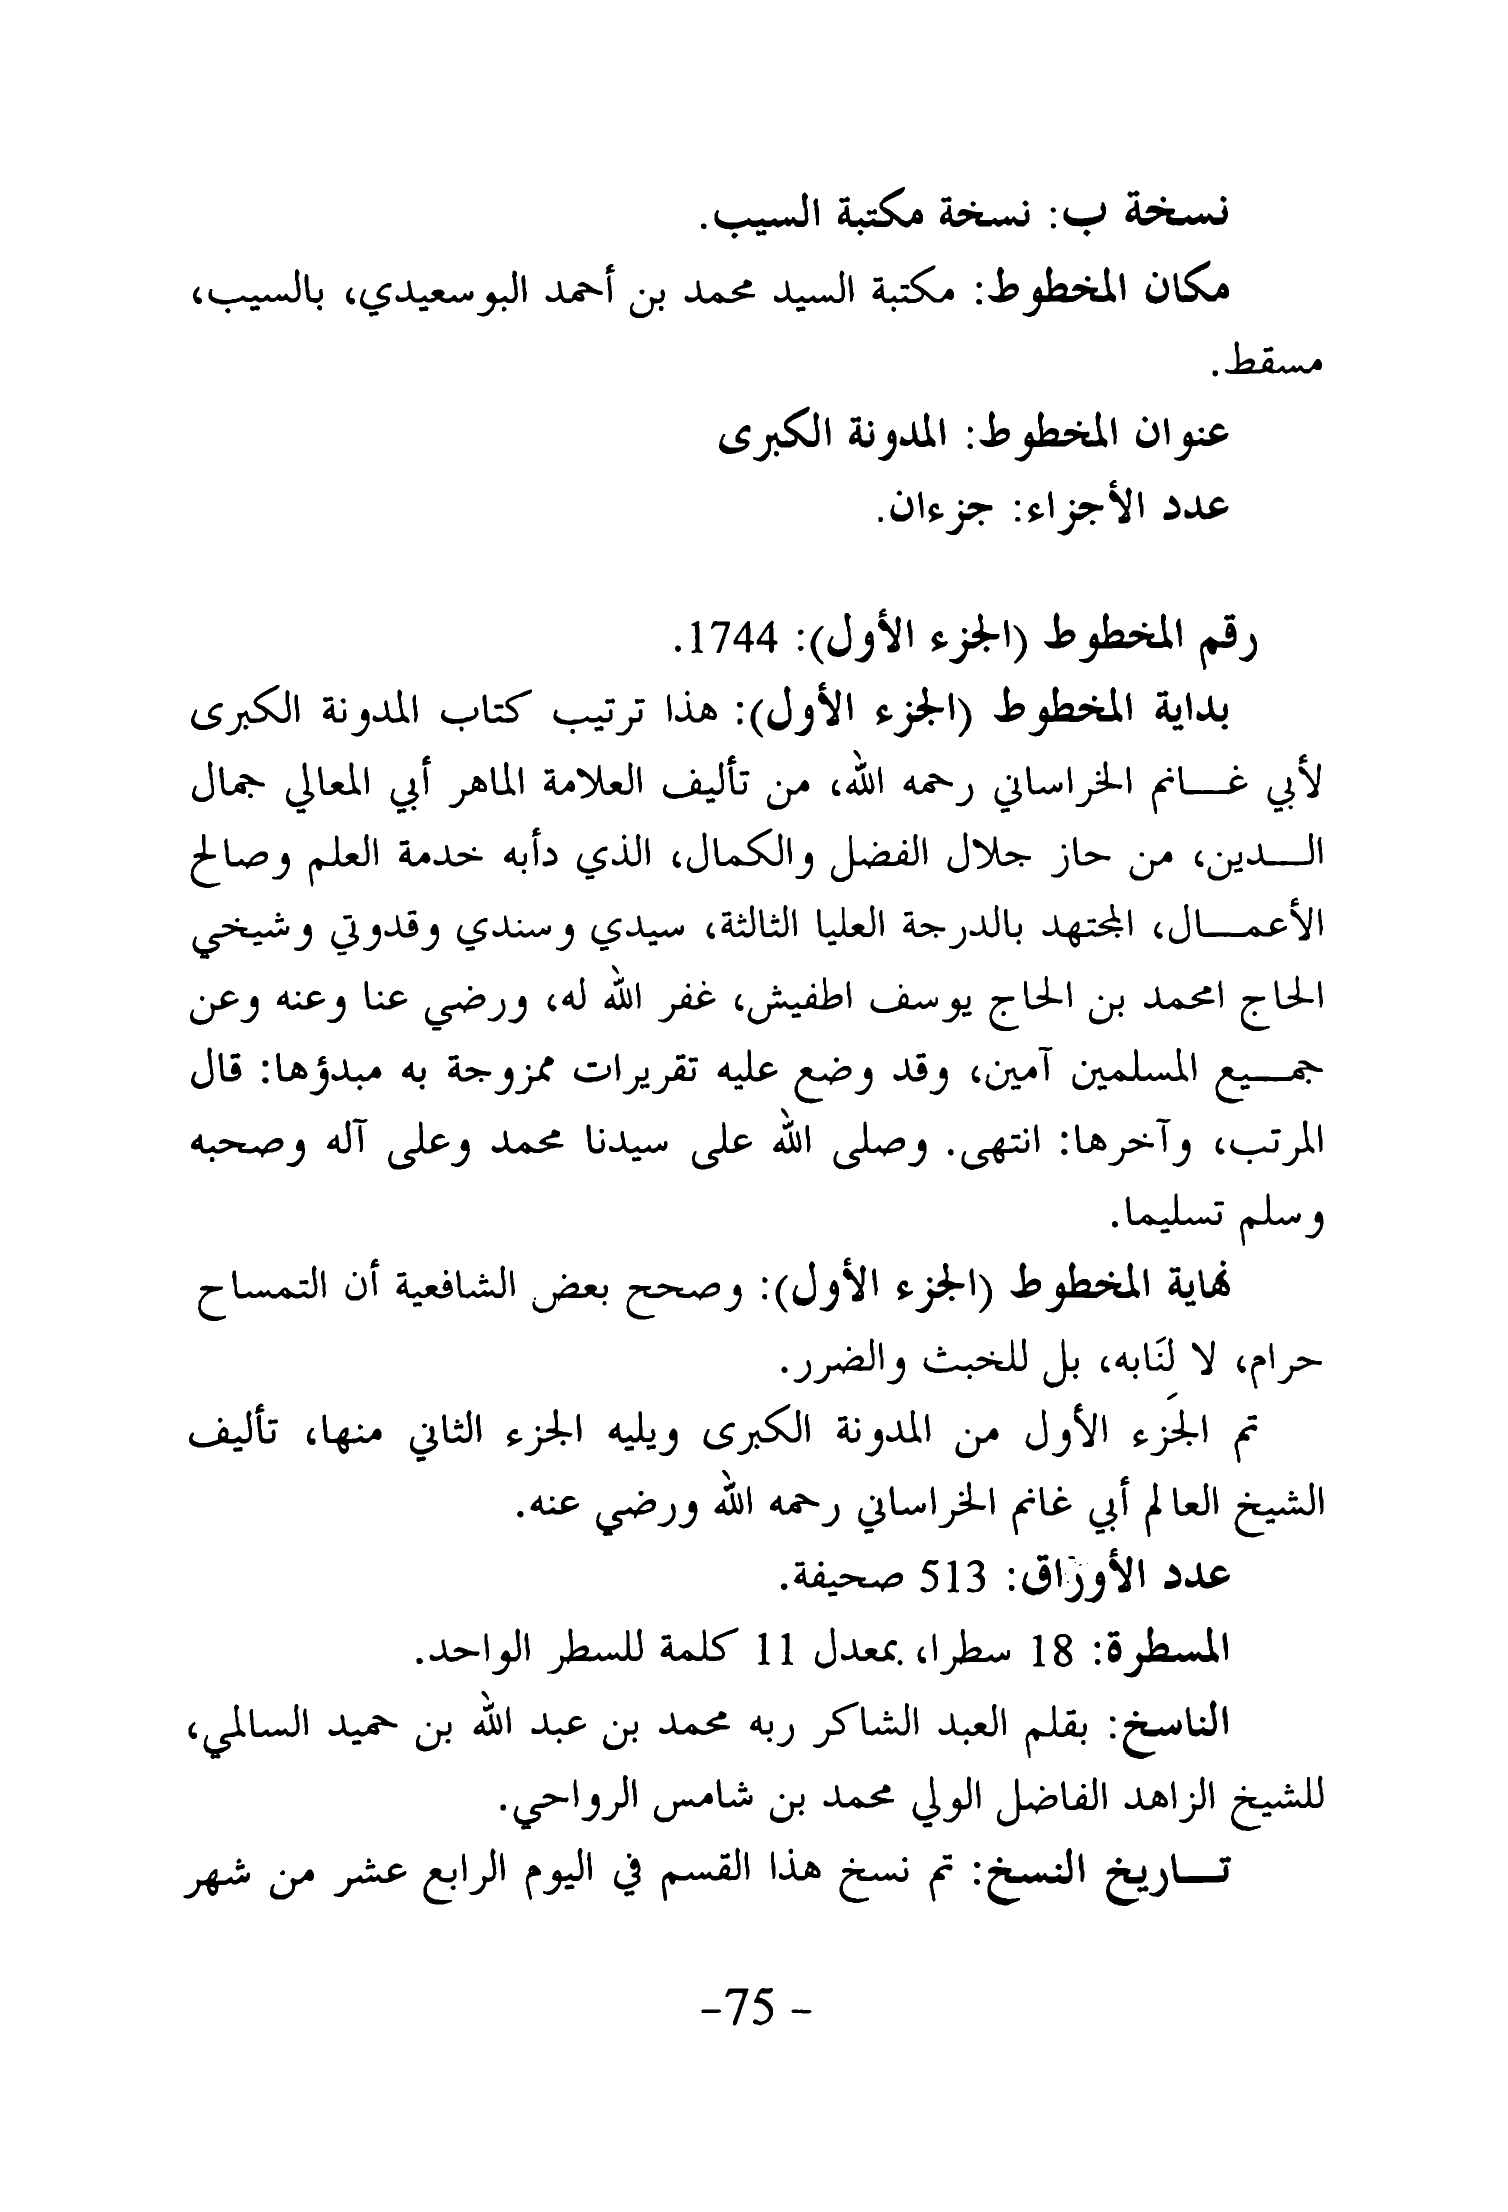 نسخة ب: نسخة مكتبة السيب.
مكان المخطوط: مكتبة السيد محمد بن أحمد البوسعيدي، بالسيب،
مسقط.
عنوان المخطوط: المدونة الكبرى
عدد الأجزاء: جزءان.
رقم المخطوط (الجزء الأول): 1744.
بداية المخطوط (الجزء الأول): هذا ترتيب كتاب المدونة الكبرى
لأبي غـــانم الخراساني رحمه الله، من تأليف العلامة الماهر أبي المعالي جمال
الـــدين، من حاز جلال الفضل والكمال، الذي دأبه خدمة العلم وصالح
الأعمـــال، المجتهد بالدرجة العليا الثالثة، سيدي وسندي وقدوتي وشيخي
الحاج امحمد بن الحاج يوسف اطفيش، غفر الله له، ورضي عنا وعنه وعن
جمـــيع المسلمين آمين، وقد وضع عليه تقريرات ممزوجة به مبدؤها: قال
المرتب، وآخرها: انتهى. وصلى الله على سيدنا محمد وعلى آله وصحبه
وسلم تسليما.
نهاية المخطوط (الجزء الأول): وصحح بعض الشافعية أن التمساح
حرام، لا لنَابه، بل للخبث والضرر.
تم الجَزء الأول من المدونة الكبرى ويليه الجزء الثاني منها، تأليف
الشيخ العالم أبي غانم الخراساني رحمه الله ورضي عنه.
عدد الأوراق: 513 صحيفة.
المسطرة: 18 سطرا، بمعدل 11 كلمة للسطر الواحد.
الناسخ: بقلم العبد الشاكر ربه محمد بن عبد الله بن حميد السالمي،
للشيخ الزاهد الفاضل الولي محمد بن شامس الرواحي.
تـــاريخ النسخ: تم نسخ هذا القسم في اليوم الرابع عشر من شهر
-75 -